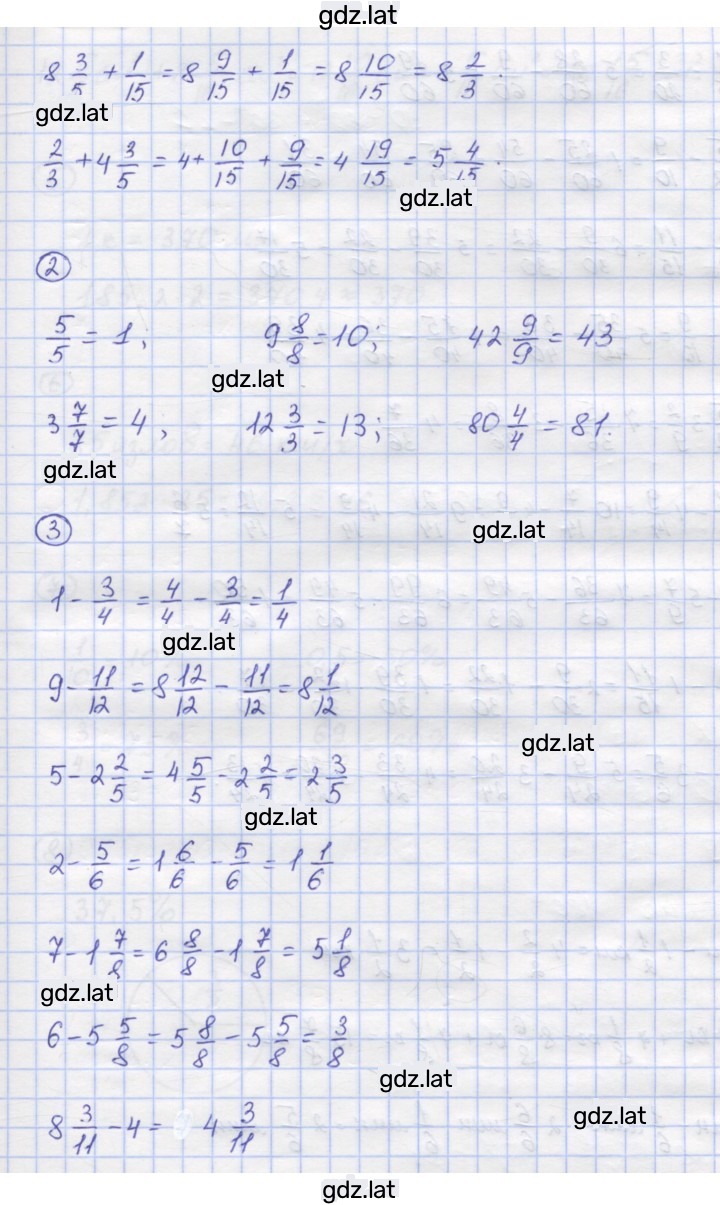 gdz.lat
8 3/5 + 1/15 = 8 9/15 + 1/15 = 8 10/15 = 8 2/3.
gdz.lat
2/3 + 4 3/5 = 4 + 10/15 + 9/15 = 4 19/15 = 5 4/15.
gdz.lat
2
5/5 = 1; 9 8/8 = 10; 42 9/9 = 43
gdz.lat
3 7/7 = 4; 12 3/3 = 13; 80 4/4 = 81.
gdz.lat
3
gdz.lat
1 - 3/4 = 4/4 - 3/4 = 1/4
gdz.lat
9 - 11/12 = 8 12/12 - 11/12 = 8 1/12
gdz.lat
5 - 2 2/5 = 4 5/5 - 2 2/5 = 2 3/5
gdz.lat
2 - 5/6 = 1 6/6 - 5/6 = 1 1/6
7 - 1 7/8 = 6 8/8 - 1 7/8 = 5 1/8
gdz.lat
6 - 5 5/8 = 5 8/8 - 5 5/8 = 3/8
gdz.lat
8 3/11 - 4 = 4 3/11
gdz.lat
gdz.lat